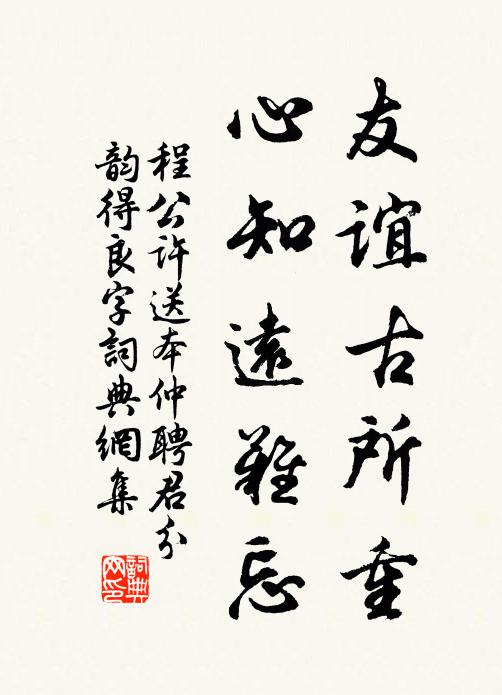 友誼古所重
心知遠難忘
程公許送李仲聘君分
韵得良字詞典網集
詞典网印